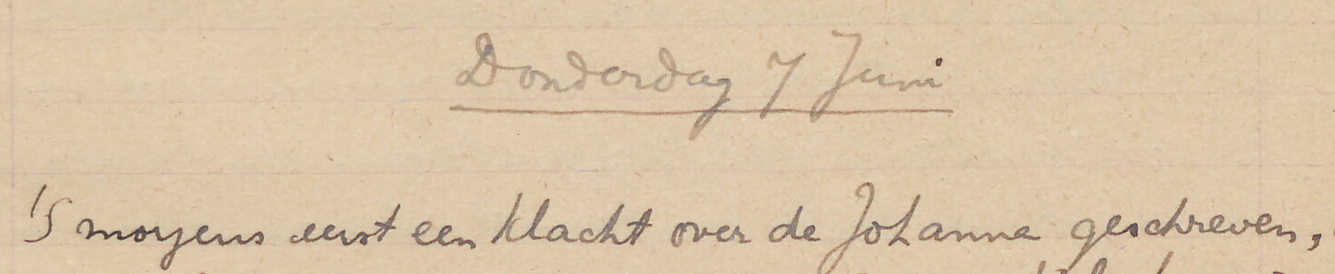 Donderdag 7 Juni
's morgens eerst een klacht over de Johanna geschreven,